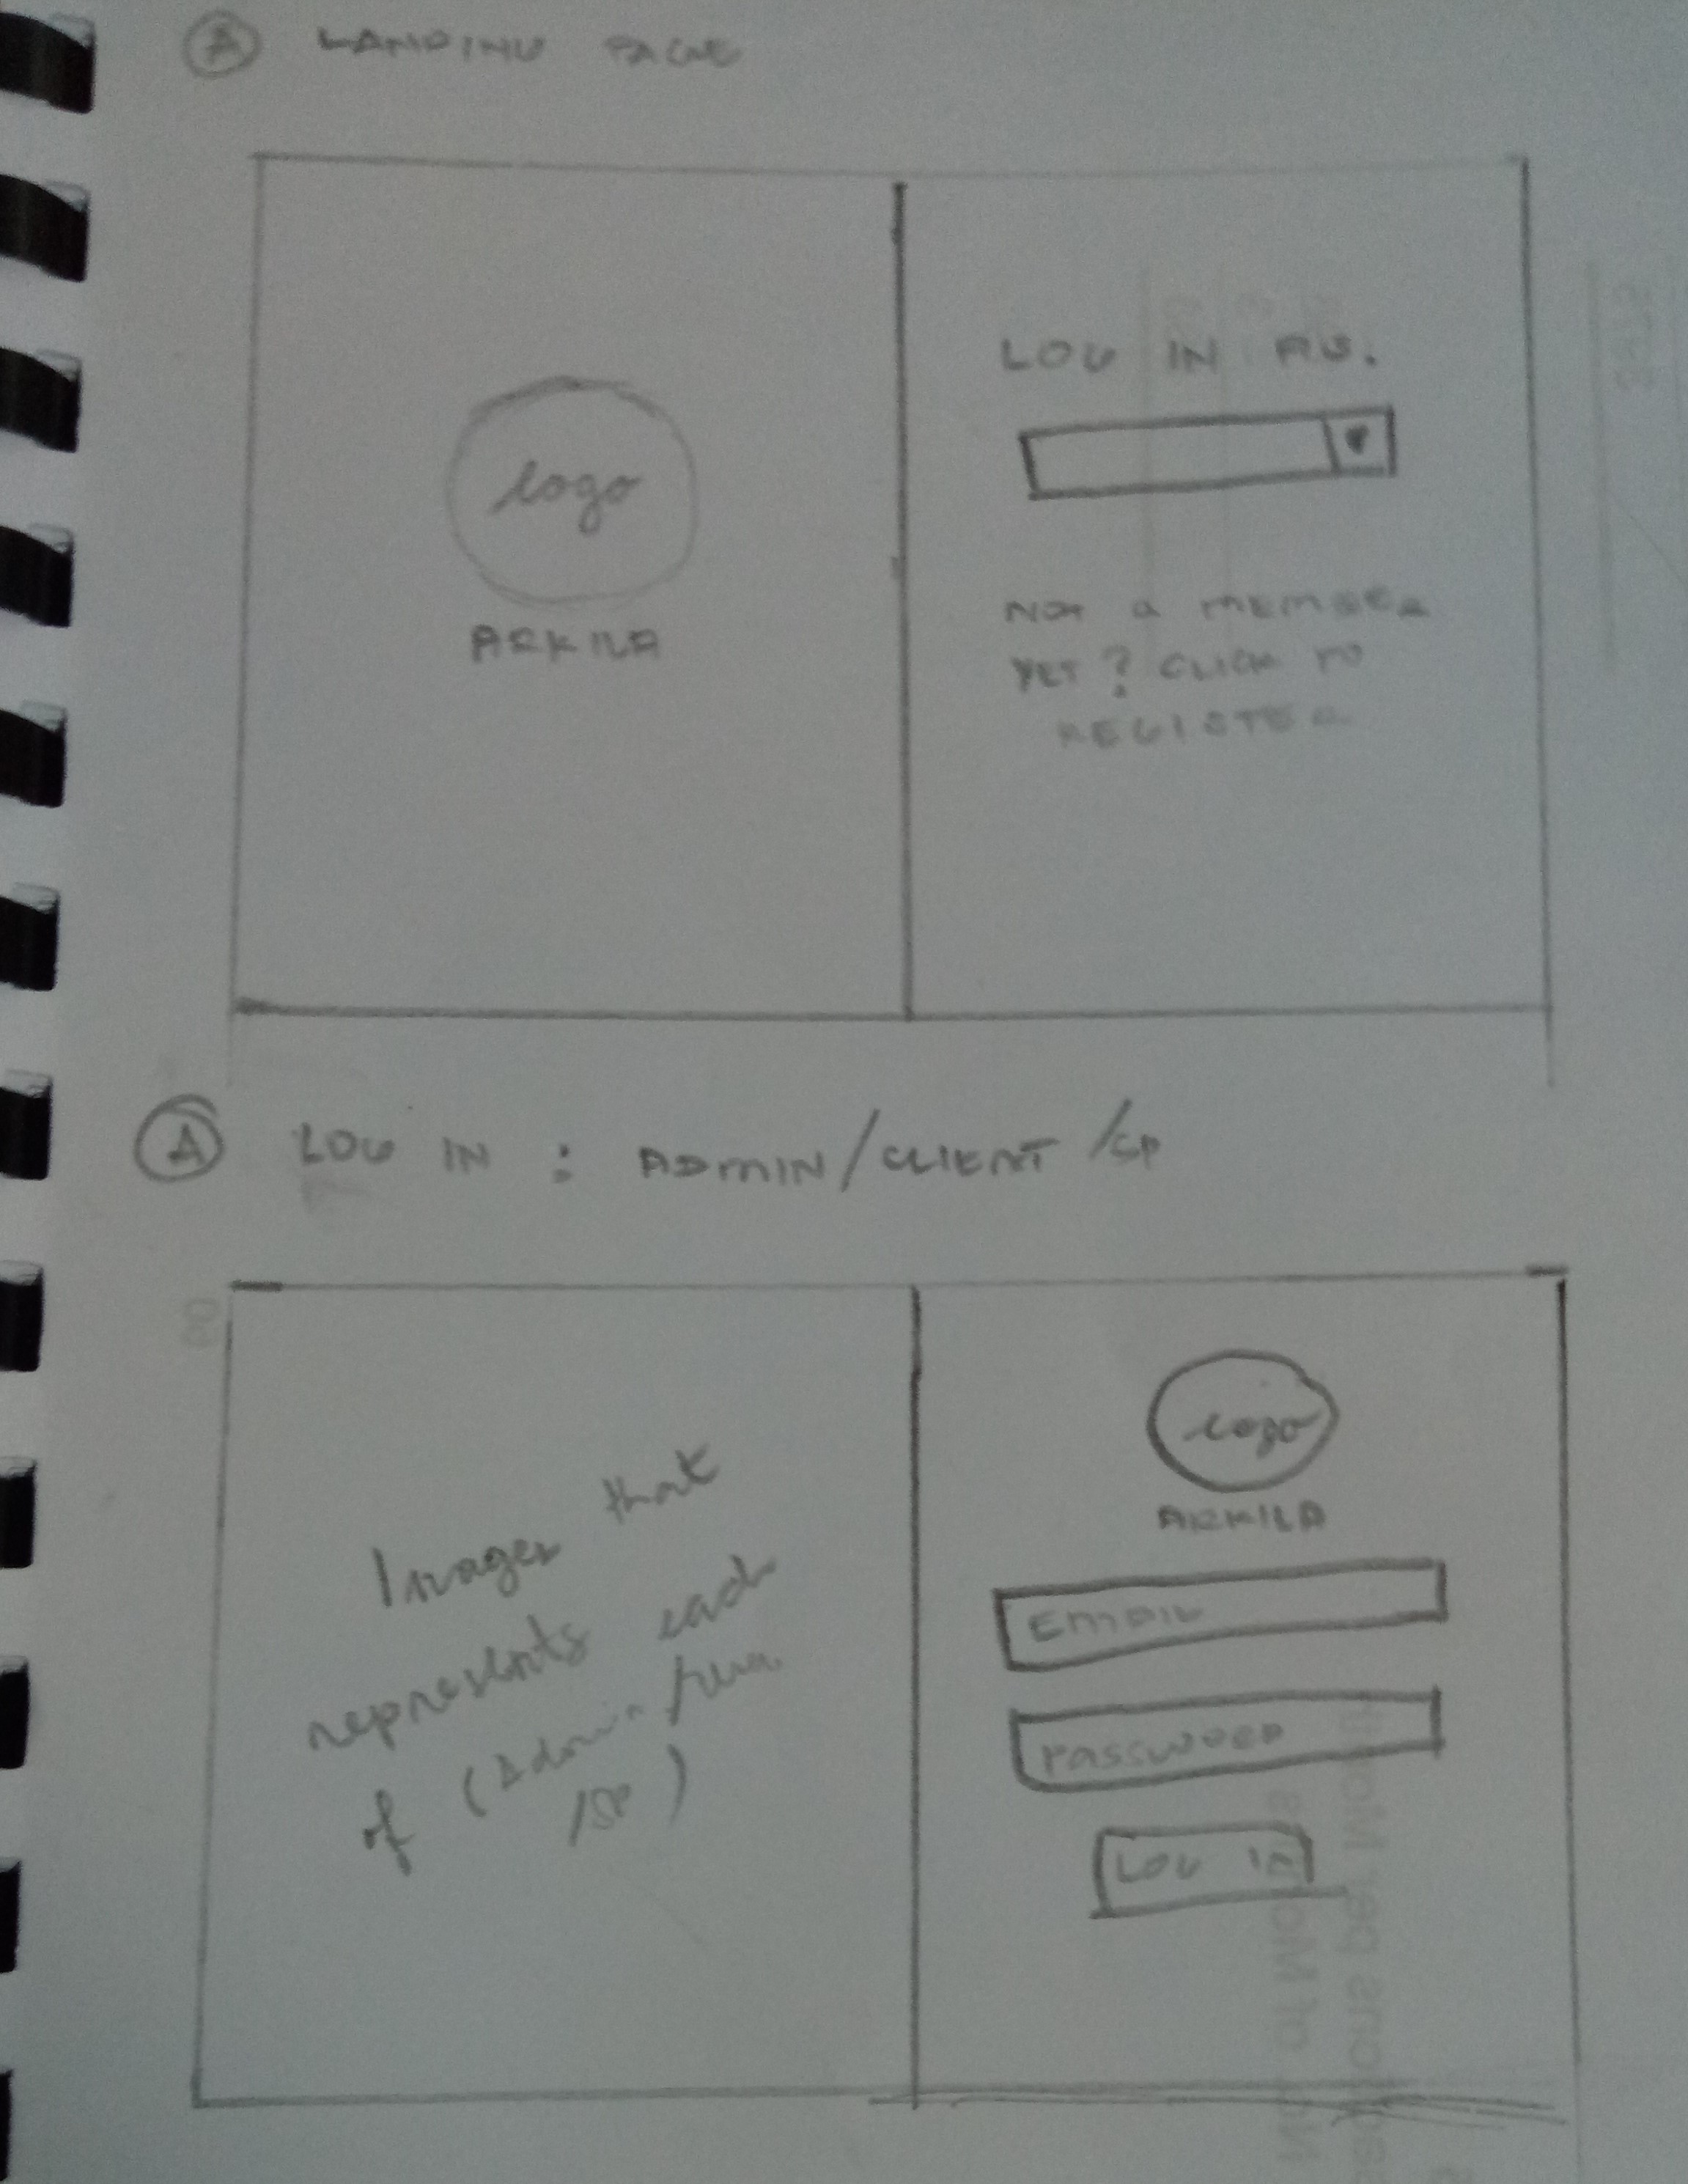 A LANDING PAGE
logo
ARKILA
LOG IN AS.
NOT a MEMBER
YET? CLICK TO
REGISTER
A LOG IN : ADMIN/CLIENT/SP
Images that
represents each
of (Admin/
/SP)
logo
ARKILA
EMAIL
PASSWORD
LOG IN